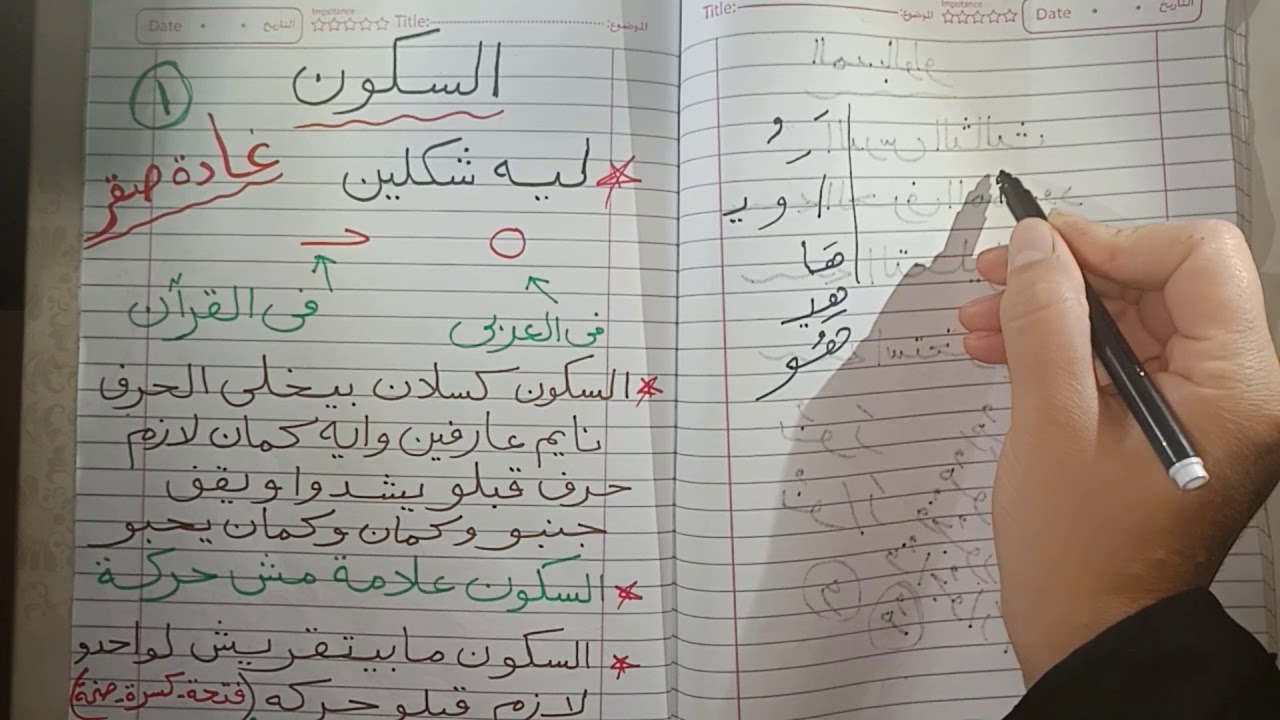 Title: الموضوع: Impotance Date التاريخ
َ ِ ُ
ا و ي
هَا
هِي
هُو
Date التاريخ Impotance Title: الموضوع:
السكون
١
ليه شكلين
غادة صقر
فى العربى
فى القرآن
السكون كسلان بيخلى الحرف
نايم عارفين وايه كمان لازم
حرف قبلو يشدوا ويقف
جنبو وكمان وكمان يحبو
السكون علامة مش حركة
السكون مابيتقريش لواحدو
لازم قبلو حركه (فتحة-كسرة-ضمة)